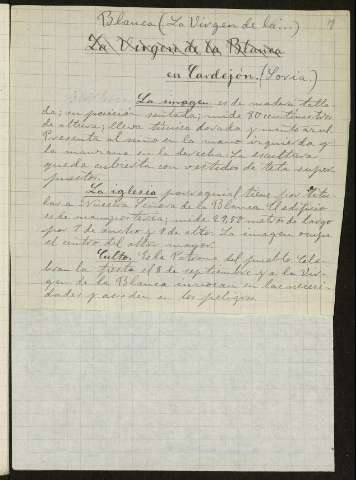 Blanca (La Virgen de la...)
La Virgen de la Blanca
en Cardejón. (Soria)
La imagen es de madera talla
da; en posición sentada; mide 80 centímetros
de altura; lleva túnica dorada y manto azul.
Presenta al niño en la mano izquierda y
la manzana en la derecha. La escultura
queda cubierta con vestidos de tela super
puestos.
La iglesia parroquial tiene por titu
lar a Nuestra Señora de la Blanca. El edificio
es de mampostería; mide metros de largo
por 7 de ancho y 8 de alto. La imagen ocupa
el centro del altar mayor.
Culto. Es la Patrona del pueblo. Cele
bran la fiesta el 8 de septiembre y a la Vir
gen de la Blanca invocan en las necesi
dades y acuden en los peligros.